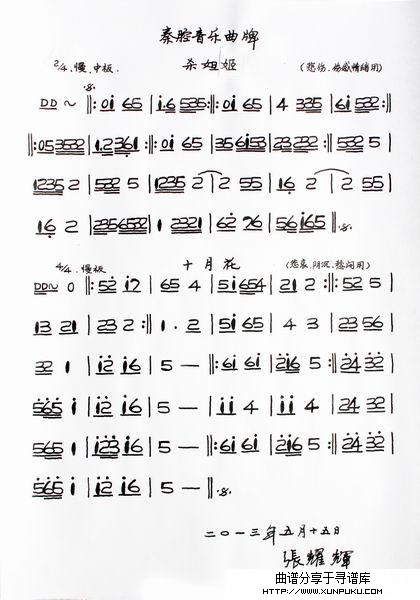 秦腔音乐曲牌
2/4、慢、中板. 杀妲姬 (悲伤、伤感情绪用)
DD～ ‖: 0i 65 | i.6 535 :‖: 0i 65 | 4 335 | 6i 532 :‖
‖: 053532 | 1.2361 :‖: 0i 65 | 35 6153 | 23 232 :‖: 532 5 |
1235 2 | 532 5 | 1235 2 | 2 55 | 16 2 | 2 55 |
16 2 | 2356532 | 1 2321 | 62 76 | 56 i65 ‖
4/4、慢板 十月花 (悲哀、阴沉、愁闷用)
DD～ 0 ‖: 52 i7 | 65 4 | 5i654 | 21 2 :‖: 52 5 |
13 21 | 23 2 :‖ 1 . 2 | 5i 65 | 4 3 | 23 56 |
32 1 | i2 i6 | 5 — :‖: 6i 6i | 2i6 5 :‖: 24 32 |
565 i | i2 i6 | 5 — | ii 4 | ii 4 | 24 32 |
565 i | i23 i6 | 5 — ‖: 6i 6i | 2i6 5 :‖ 24 32 |
565 i | i2 i6 | 5 — ‖
二〇一三年五月十五日
張耀輝
曲谱分享于寻谱库
WWW.XUNPUKU.COM